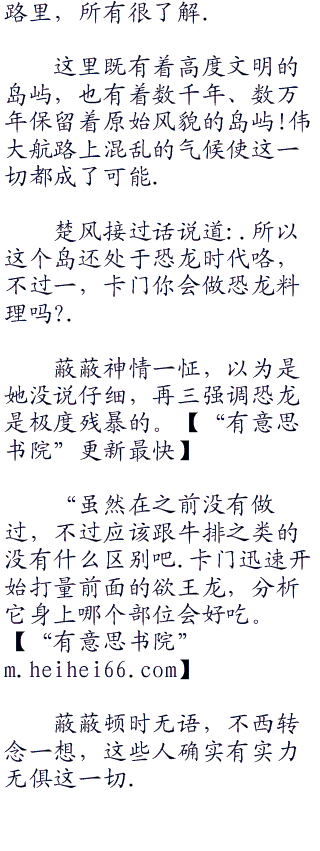 路里，所有很了解.
这里既有着高度文明的
岛屿，也有着数千年、数万
年保留着原始风貌的岛屿!伟
大航路上混乱的气候使这一
切都成了可能.
楚风接过话说道:.所以
这个岛还处于恐龙时代咯，
不过一，卡门你会做恐龙料
理吗?.
蔽蔽神情一怔，以为是
她没说仔细，再三强调恐龙
是极度残暴的。【“有意思
书院”更新最快】
“虽然在之前没有做
过，不过应该跟牛排之类的
没有什么区别吧.卡门迅速开
始打量前面的欲王龙，分析
它身上哪个部位会好吃。
【“有意思书院”
m.heihei66.com】
蔽蔽顿时无语，不西转
念一想，这些人确实有实力
无惧这一切.